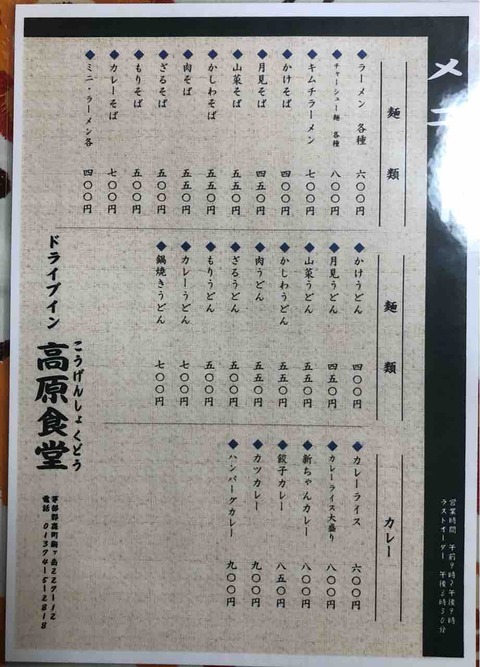 メニ
営業時間 午前9時〜午後9時
ラストオーダー 午後8時30分
麺類
ラーメン 各種 六〇〇円
チャーシュー麺 各種 八〇〇円
キムチラーメン 七〇〇円
かけそば 四〇〇円
月見そば 四五〇円
山菜そば 五五〇円
かしわそば 五五〇円
肉そば 五五〇円
ざるそば 五〇〇円
もりそば 五〇〇円
カレーそば 七〇〇円
ミニ・ラーメン各 四〇〇円
麺類
かけうどん 四〇〇円
月見うどん 四五〇円
山菜うどん 五五〇円
かしわうどん 五五〇円
肉うどん 五五〇円
ざるうどん 五〇〇円
もりうどん 五〇〇円
カレーうどん 七〇〇円
鍋焼きうどん 七〇〇円
カレー
カレーライス 六〇〇円
カレーライス大盛り 八〇〇円
新ちゃんカレー 八〇〇円
餃子カレー 八五〇円
カツカレー 九〇〇円
ハンバーグカレー 九〇〇円
ドライブイン
こうげんしょくどう
高原食堂
茅部郡森町駒ヶ岳227-12
電話 01374-5-2818